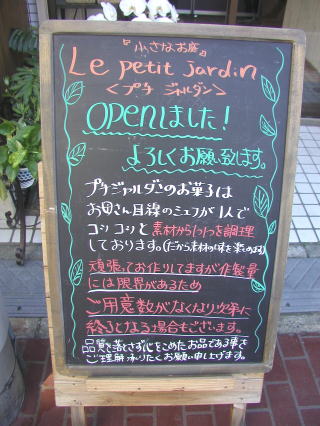 『小さなお庭』
Le petit jardin
＜プチ ジャルダン＞
OPENしました!
よろしくお願い致します。
プチジャルダンのお菓子は
お母さん目線のシェフが1人で
コツコツと素材から1つ1つを調理
しております。(だから素材の味を楽しめます)
頑張ってお作りしてますが作製量
には限界があるため
ご用意数がなくなり次第に
終了となる場合もございます。
品質を落とさず心をこめたお品である事を
ご理解承りたくお願い申し上げます。